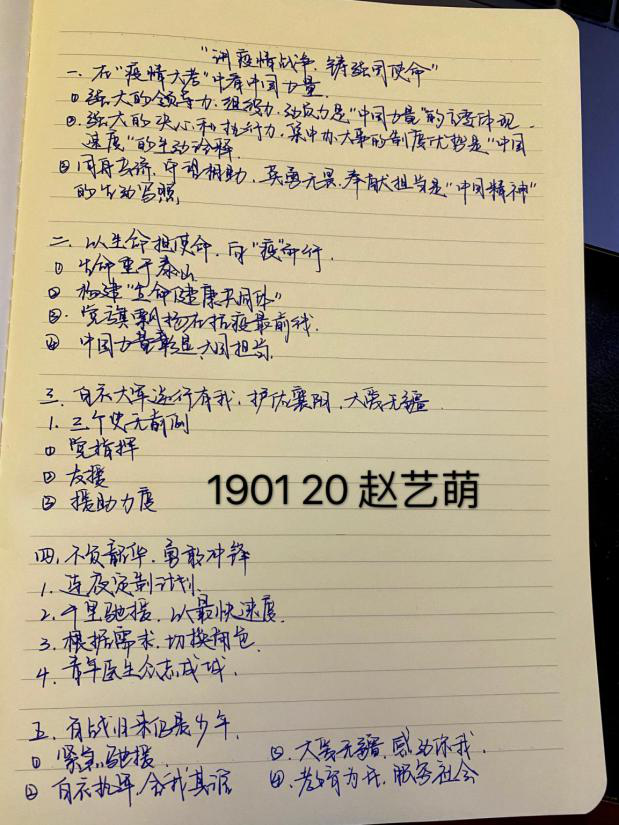 "讲疫情战争，铸强国使命"
一、在"疫情大考"中看中国力量
① 强大的领导力、组织力、动员力是"中国力量"的深度体现.
② 强大的决心和执行力，集中办大事的制度优势是"中国
速度"的生动诠释.
③ 同舟共济、守望相助、英勇无畏、奉献担当是"中国精神"
的生动写照.
二、以生命担使命，向"疫"而行.
① 生命重于泰山
② 构建"生命健康共同体"
③. 党旗飘扬在抗疫最前线.
④ 中国力量彰显大国担当.
三、白衣大军逆行有我，护佑襄阳，大爱无疆.
1. 三个史无前例
① 党指挥
② 支援
③ 援助力度
190120 赵艺萌
四、不负韶华，勇敢冲锋
1. 连夜定制计划.
2. 千里驰援，以最快速度.
3. 根据需求，切换
4. 青年医生众志成城.
五、有战归来仍是少年.
① 紧急驰援.
② 白衣执甲，舍我其谁
③. 大爱无疆，感动你我.
④. 教育为本，服务社会